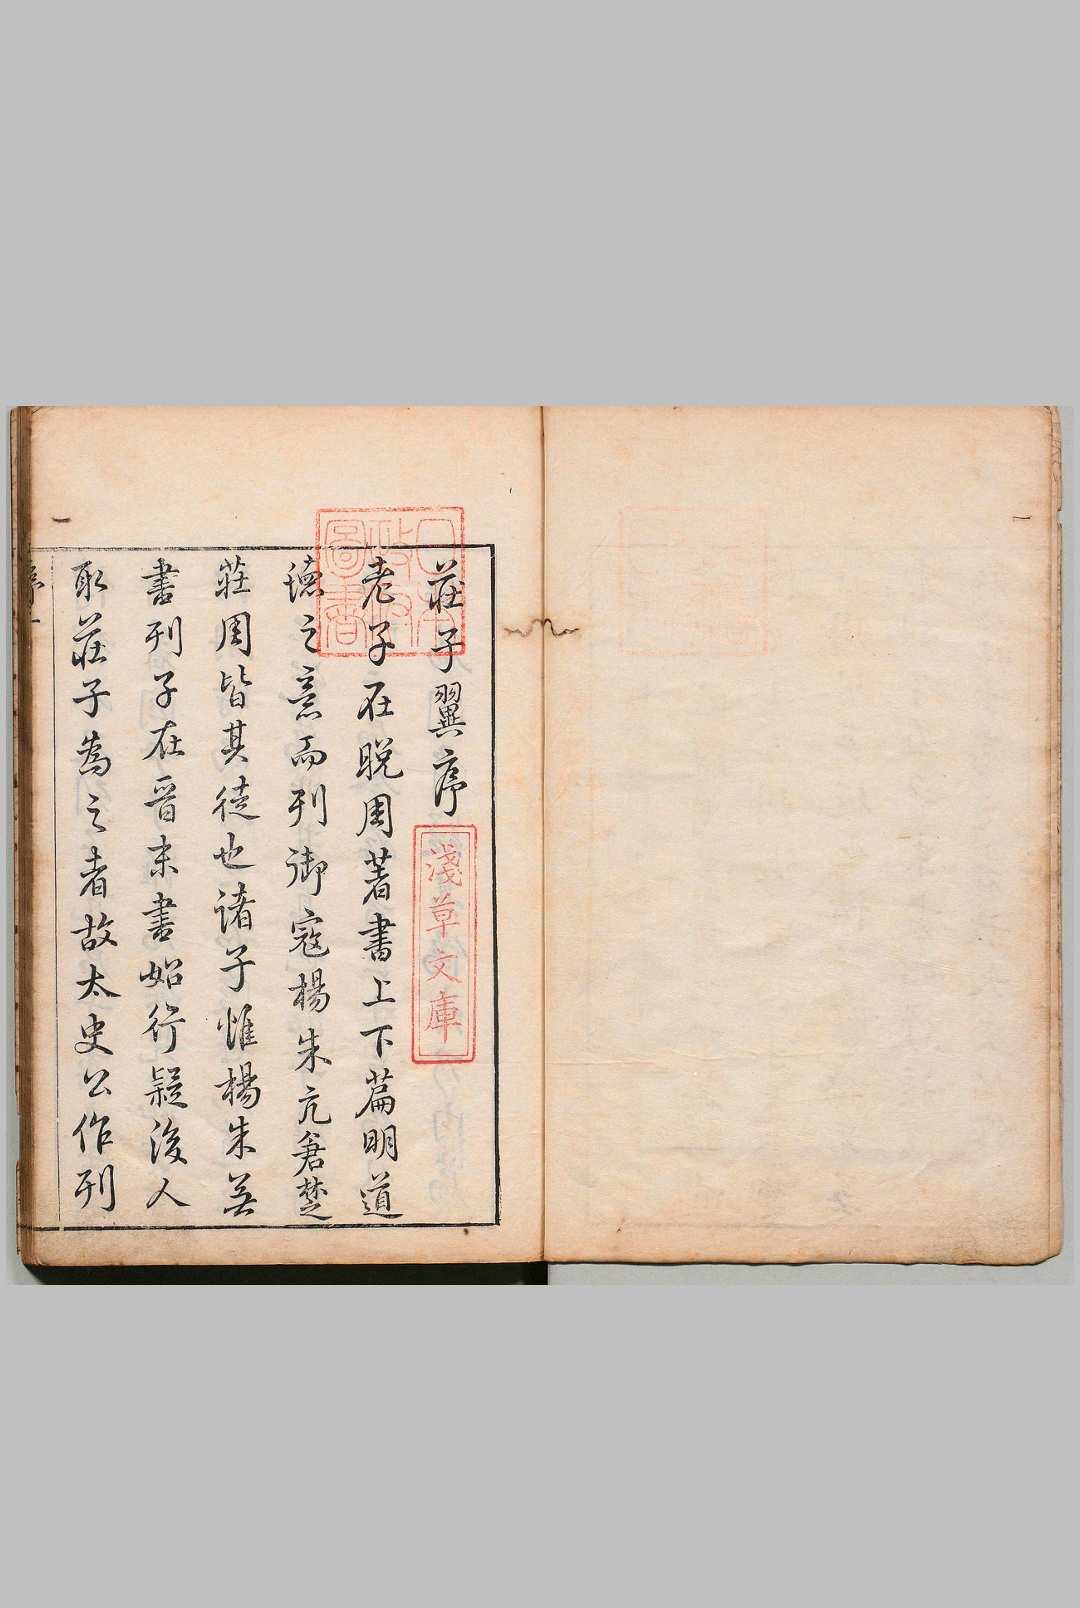 莊子翼序
老子在晚周著書上下篇明道
德之意而列御寇楊朱亢倉楚
莊周皆其徒也諸子惟楊朱無
書列子在晉末書始行疑後人
取莊子為之者故太史公作列
淺草文庫
日本
政府
圖書
序 一